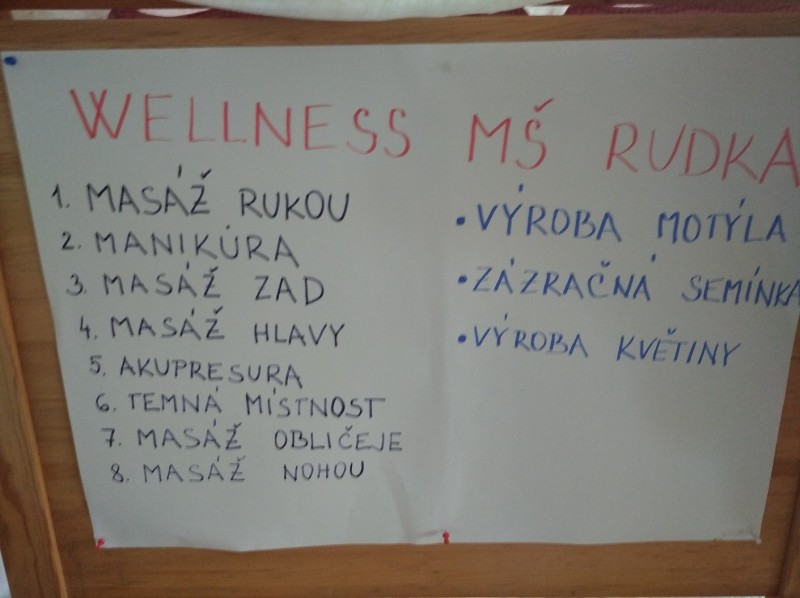 WELLNESS MŠ RUDKA
1. MASÁŽ RUKOU
2. MANIKÚRA
3. MASÁŽ ZAD
4. MASÁŽ HLAVY
5. AKUPRESURA
6. TEMNÁ MÍSTNOST
7. MASÁŽ OBLIČEJE
8. MASÁŽ NOHOU
• VÝROBA MOTÝLA
• ZÁZRAČNÁ SEMÍNKA
• VÝROBA KVĚTINY